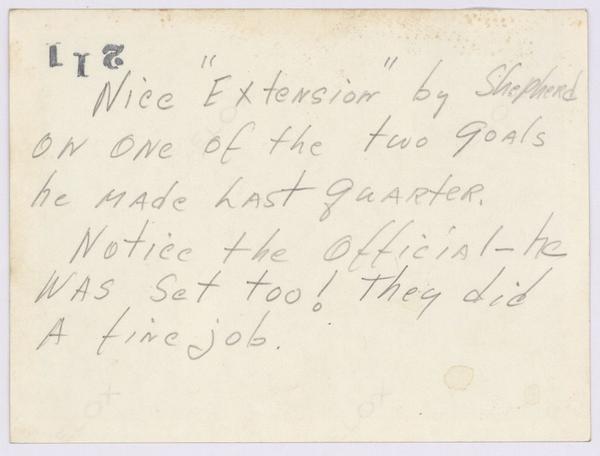 211
Nice "Extension" by Shepherd
on one of the two goals
he made last quarter.
Notice the official - he
was set too! They did
a fine job.